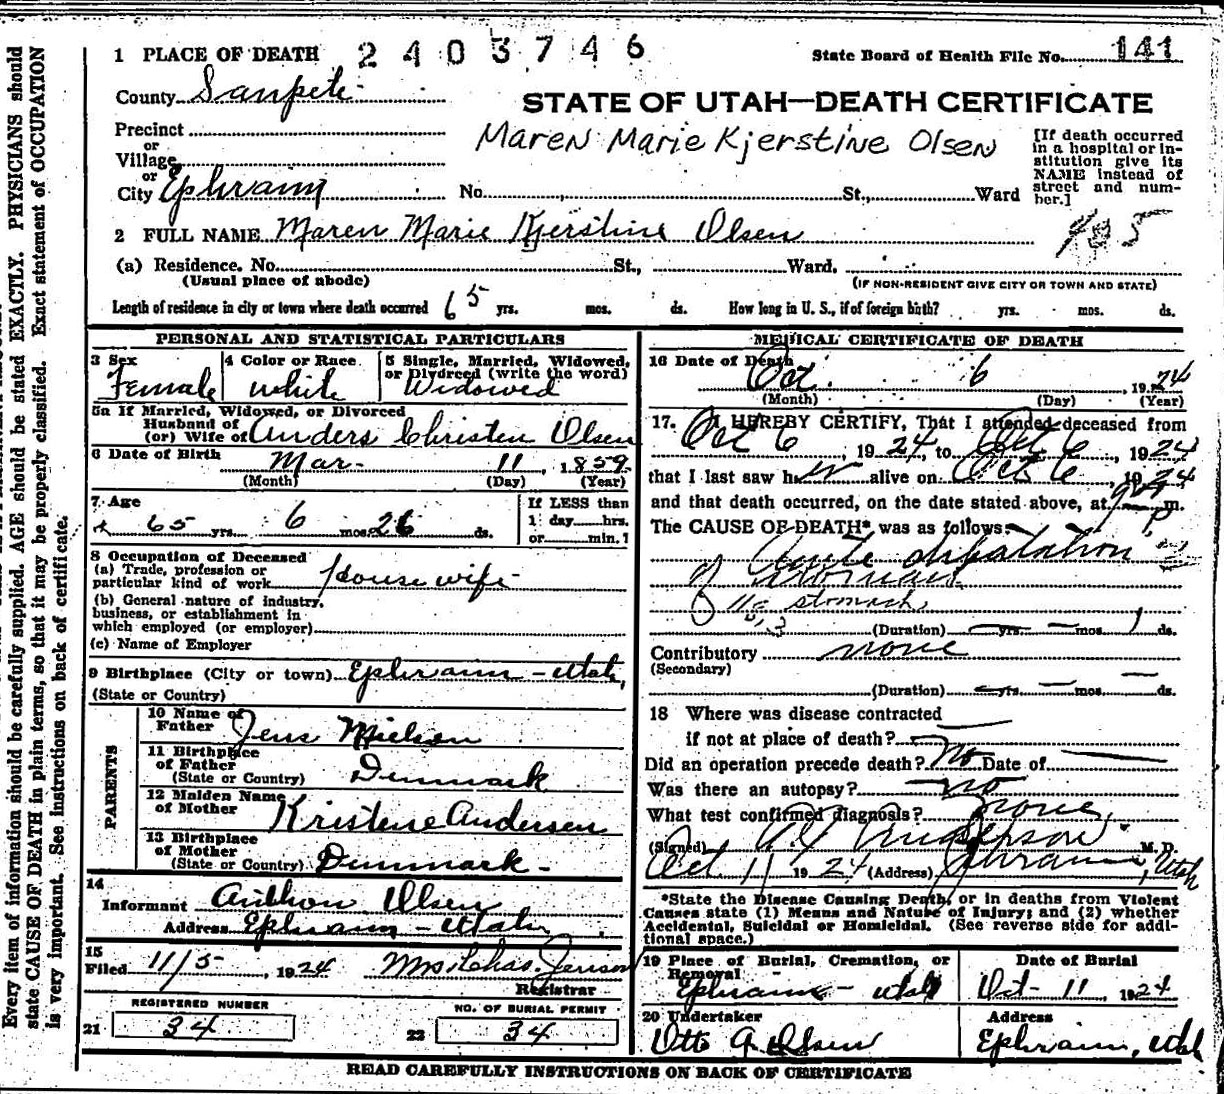 1 PLACE OF DEATH 2403746 State Board of Health File No. 141
County Sanpete
STATE OF UTAH—DEATH CERTIFICATE
Precinct
or
Village
or
City Ephraim No. St., Ward
Maren Marie Kjerstine Olsen
[If death occurred
in a hospital or in-
stitution give its
NAME instead of
street and num-
ber.]
2 FULL NAME Maren Marie Kjerstine Olsen
(a) Residence. No. St., Ward.
(Usual place of abode) (IF NON-RESIDENT GIVE CITY OR TOWN AND STATE)
Length of residence in city or town where death occurred 65 yrs. mos. ds. How long in U. S., if of foreign birth? yrs. mos. ds.
PERSONAL AND STATISTICAL PARTICULARS
3 Sex
Female
4 Color or Race
white
5 Single, Married, Widowed,
or Divorced (write the word)
Widowed
5a If Married, Widowed, or Divorced
Husband of
(or) Wife of Anders Christen Olsen
6 Date of Birth
Mar- 11, 1859
(Month) (Day) (Year)
7 Age
65 yrs. 6 mos. 26 ds.
If LESS than
1 day hrs.
or min.?
8 Occupation of Deceased
(a) Trade, profession or
particular kind of work House wife
(b) General nature of industry,
business, or establishment in
which employed (or employer)
(c) Name of Employer
9 Birthplace (City or town) Ephraim - Utah,
(State or Country)
PARENTS
10 Name of
Father Jens Nielsen
11 Birthplace
of Father
(State or Country) Denmark
12 Maiden Name
of Mother Kristene Andersen
13 Birthplace
of Mother
(State or Country) Denmark -
14
Informant Anthon Olsen
Address Ephraim - Utah
15
Filed 11/5, 1924 Mrs. Chas. Jenson
Registrar
REGISTERED NUMBER
21 34
NO. OF BURIAL PERMIT
22 34
MEDICAL CERTIFICATE OF DEATH
16 Date of Death
Oct. 6 1924
(Month) (Day) (Year)
17. I HEREBY CERTIFY, That I attended deceased from
Oct 6, 1924, to Oct 6, 1924
that I last saw her alive on Oct 6, 1924
and that death occurred, on the date stated above, at P.m.
The CAUSE OF DEATH* was as follows:
Acute dilatation
of
stomach
(Duration) yrs. mos. 1 ds.
Contributory none
(Secondary)
(Duration) yrs. mos. ds.
18 Where was disease contracted
if not at place of death?
Did an operation precede death? No Date of
Was there an autopsy? no
What test confirmed diagnosis? none
(Signed) M. D.
Oct. 11 1924 (Address) Ephraim, Utah
*State the Disease Causing Death, or in deaths from Violent
Causes state (1) Means and Nature of Injury; and (2) whether
Accidental, Suicidal or Homicidal. (See reverse side for addi-
tional space.)
19 Place of Burial, Cremation, or
Removal
Ephraim - Utah
Date of Burial
Oct - 11, 1924
20 Undertaker
Otto A Olsen
Address
Ephraim, Utah
READ CAREFULLY INSTRUCTIONS ON BACK OF CERTIFICATE
Every item of information should be carefully supplied. AGE should be stated EXACTLY. PHYSICIANS should
state CAUSE OF DEATH in plain terms, so that it may be properly classified. Exact statement of OCCUPATION
is very important. See instructions on back of certificate.